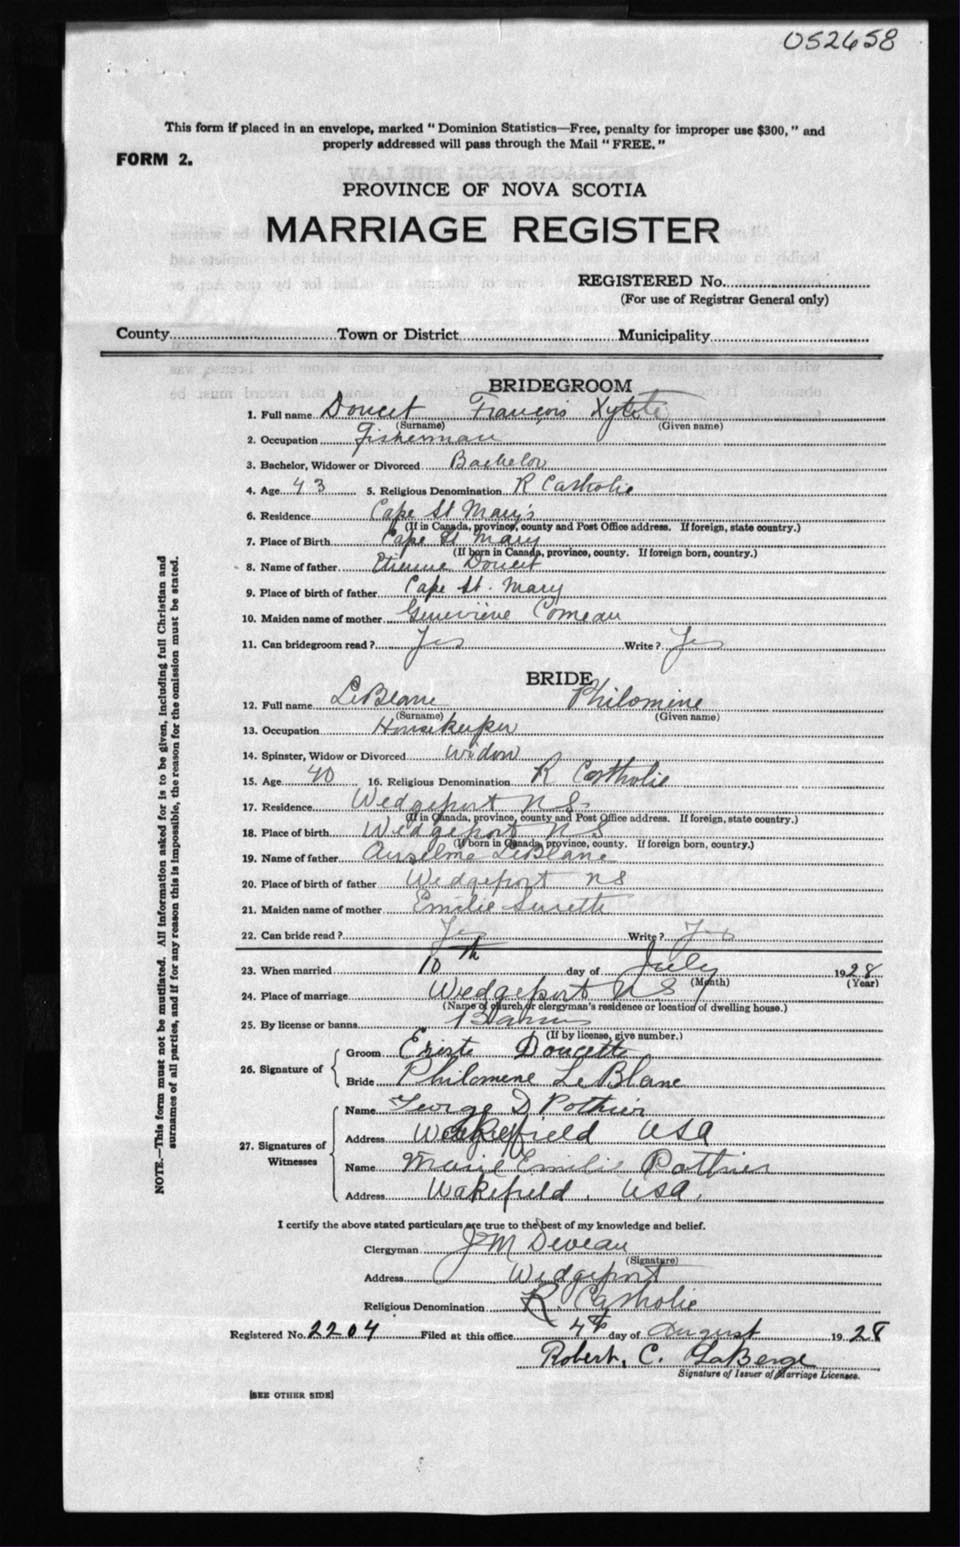 052658
This form if placed in an envelope, marked "Dominion Statistics—Free, penalty for improper use $300," and
properly addressed will pass through the Mail "FREE."
FORM 2.
PROVINCE OF NOVA SCOTIA
MARRIAGE REGISTER
REGISTERED No.
(For use of Registrar General only)
County Town or District Municipality
BRIDEGROOM
1. Full name Doucet François
(Surname) (Given name)
2. Occupation Fisherman
3. Bachelor, Widower or Divorced Bachelor
4. Age 43 5. Religious Denomination R Catholic
6. Residence Cape St Mary's
(If in Canada, province, county and Post Office address. If foreign, state country.)
7. Place of Birth Cape St Mary
(If born in Canada, province, county. If foreign born, country.)
8. Name of father Etienne Doucet
9. Place of birth of father Cape St. Mary
10. Maiden name of mother Geneviève Comeau
11. Can bridegroom read? Yes Write? Yes
BRIDE
12. Full name LeBlanc Philomine
(Surname) (Given name)
13. Occupation Housekeeper
14. Spinster, Widow or Divorced Widow
15. Age 40 16. Religious Denomination R Catholic
17. Residence Wedgeport N S
(If in Canada, province, county and Post Office address. If foreign, state country.)
18. Place of birth Wedgeport N S
(If born in Canada, province, county. If foreign born, country.)
19. Name of father Anselme LeBlanc
20. Place of birth of father Wedgeport N S
21. Maiden name of mother Emilie Surette
22. Can bride read? Yes Write? Yes
23. When married 10th day of July 1928
(Month) (Year)
24. Place of marriage Wedgeport N S
(Name of church or clergyman's residence or location of dwelling house.)
25. By license or banns Banns
(If by license, give number.)
26. Signature of
Groom Doucette
Bride Philomene LeBlanc
27. Signatures of
Witnesses
Name George D Pothier
Address Wakefield USA
Name Marie Emilie Pothier
Address Wakefield. USA.
I certify the above stated particulars are true to the best of my knowledge and belief.
Clergyman J M Deveau
(Signature)
Address Wedgeport
Religious Denomination R. Catholic
Registered No. 2204 Filed at this office 4th day of August 1928
Robert, C. LaBerge
Signature of Issuer of Marriage Licenses.
[SEE OTHER SIDE]
NOTE.—This form must not be mutilated. All information asked for is to be given, including full Christian and
surnames of all parties, and if for any reason this is impossible, the reason for the omission must be stated.